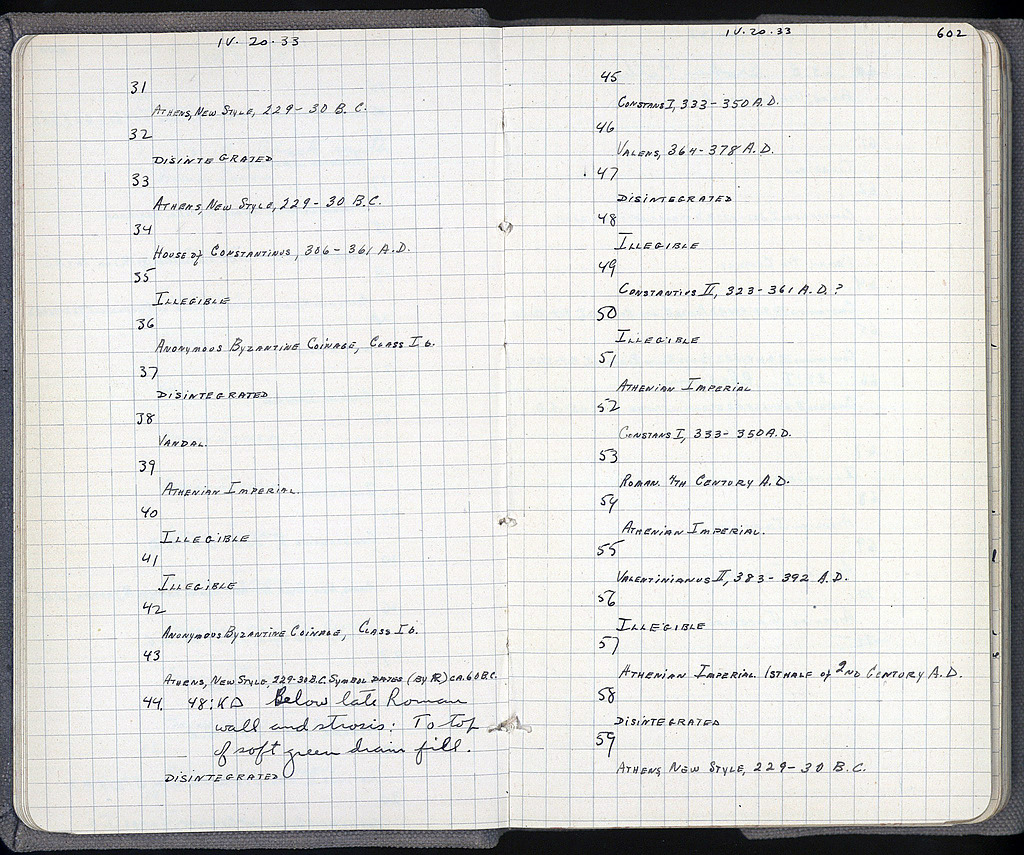 IV. 20. 33
31
ATHENS, NEW STYLE, 229-30 B.C.
32
DISINTEGRATED
33
ATHENS, NEW STYLE, 229-30 B.C.
34
HOUSE of CONSTANTINUS, 306-361 A.D.
35
ILLEGIBLE
36
ANONYMOUS BYZANTINE COINAGE, CLASS I b.
37
DISINTEGRATED
38
VANDAL.
39
ATHENIAN IMPERIAL.
40
ILLEGIBLE
41
ILLEGIBLE
42
ANONYMOUS BYZANTINE COINAGE, CLASS I b.
43
ATHENS, NEW STYLE, 229-30 B.C. SYMBOL DATES (BY) CA. 60 B.C.
44. 48: KΔ Below late Roman
wall and strosis: To top
of soft green drain fill.
DISINTEGRATED
IV. 20. 33
602
45
CONSTANS I, 333-350 A.D.
46
VALENS, 364-378 A.D.
47
DISINTEGRATED
48
ILLEGIBLE
49
CONSTANTIUS II, 323-361 A.D.?
50
ILLEGIBLE
51
ATHENIAN IMPERIAL
52
CONSTANS I, 333-350 A.D.
53
ROMAN. 4TH CENTURY A.D.
54
ATHENIAN IMPERIAL.
55
VALENTINIANUS II, 383-392 A.D.
56
ILLEGIBLE
57
ATHENIAN IMPERIAL 1ST HALF of 2ND CENTURY A.D.
58
DISINTEGRATED
59
ATHENS, NEW STYLE, 229-30 B.C.